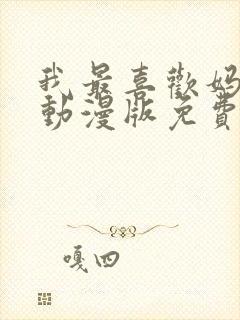 我最喜歡媽
動漫版免費
嘎四